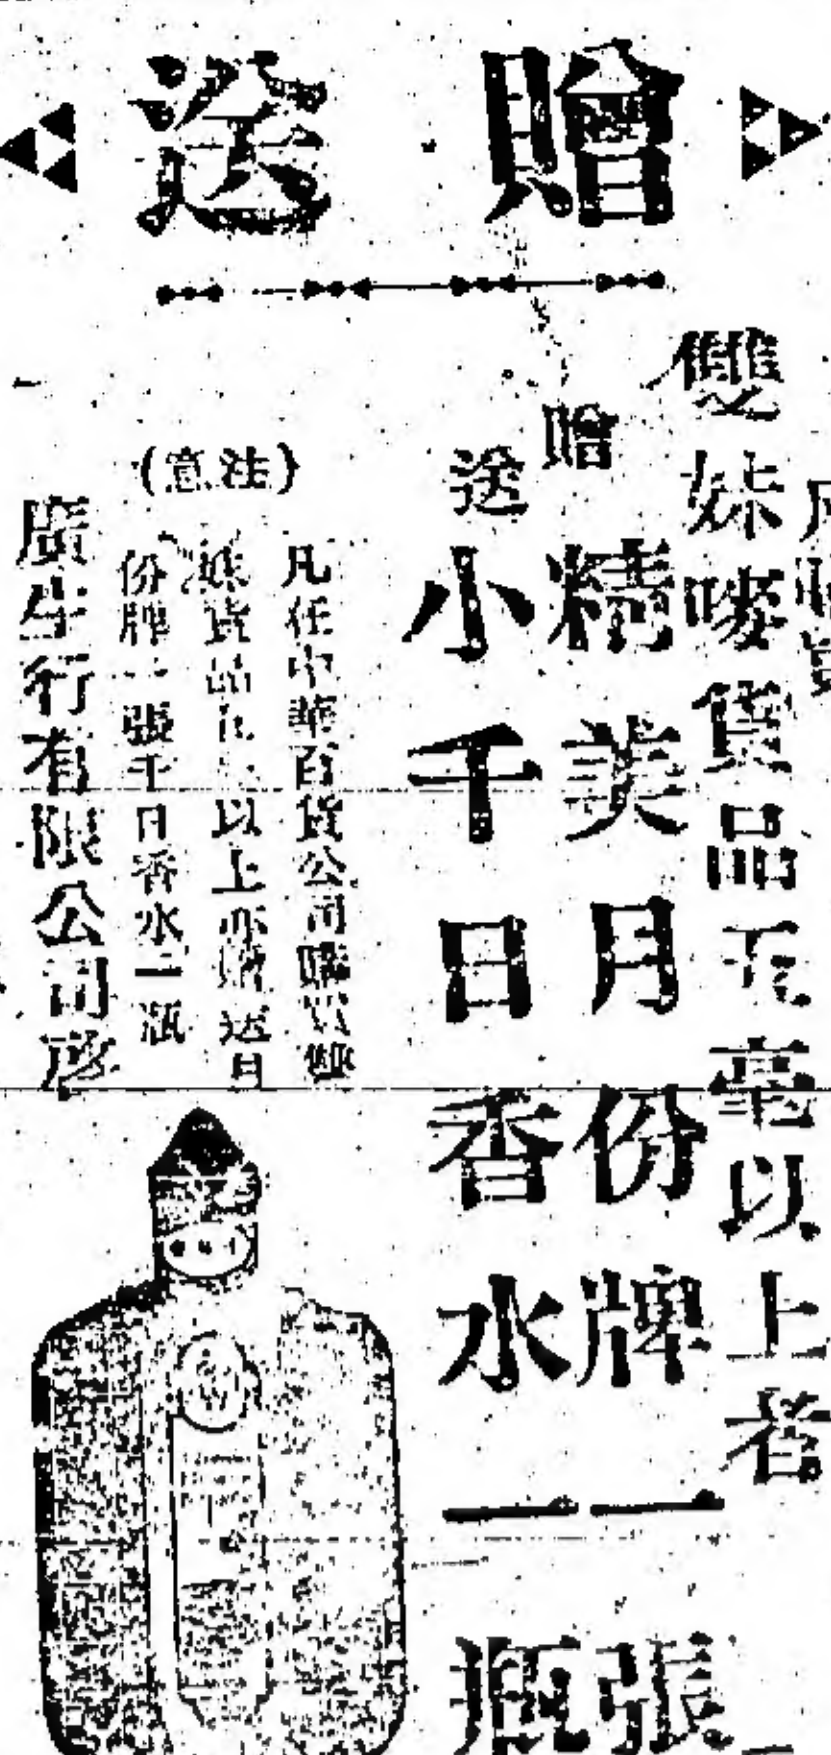 贈送
雙妹嘜貨品五毫以上者
贈精美月份牌一張
送小千日香水一瓶
(注意)
凡在中華百貨公司購買雙
妹貨品以上亦贈送月
份牌一張千日香水一瓶
廣生行有限公司啓